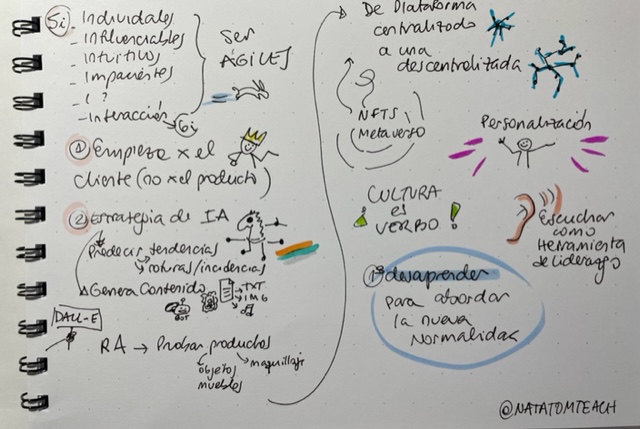 5i
- Individales
- Influenciables
- Intuitivos
- Impacientes
- i ?
- interacción 6i
Ser
ÁGILES
① Empieza x el
cliente (no x el producto)
② Estrategia de IA
Predecir tendencias
roturas/incidencias
Genera Contenido
BOT
TXT
IMG
DALL-E
RA → Probar productos
objetos
muebles
maquillaje
De Plataforma
centralizado
a una
descentralizada
NFTS
Metaverso
Personalización
CULTURA
es
VERBO!
Escuchar
como
Herramienta
de liderazgo
1º desaprender
para abordar
la nueva
Normalidad
@NATATOMTEACH